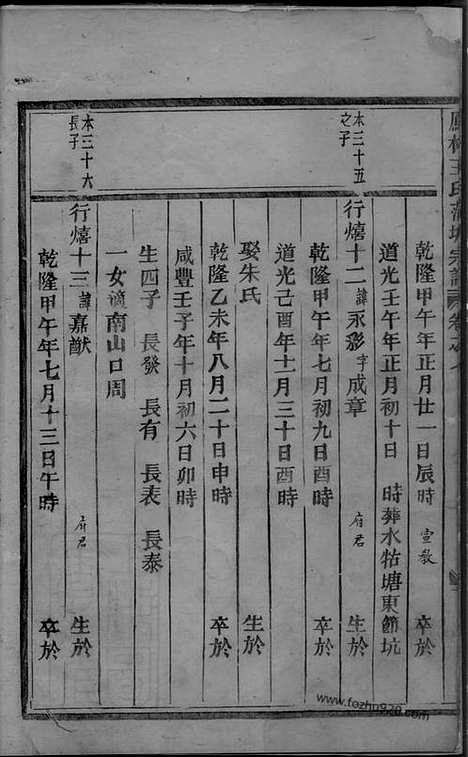 乾隆甲午年正月廿一日辰時 宣教 卒於
道光壬午年正月初十日 時葬水牯塘東節坑
本三十五之子
行熺十二 諱永彩字成章 府君 生於
乾隆甲午年七月初九日酉時 卒於
道光己酉年十二月三十日酉時
娶朱氏 生於
乾隆乙未年八月二十日申時 卒於
咸豐壬子年十月初六日卯時
生四子 長發 長有 長表 長泰
一女適南山口周
本三十六長子
行熺十三 諱嘉猷 府君 生於
乾隆甲午年七月十三日午時 卒於
www.fozhu920.com